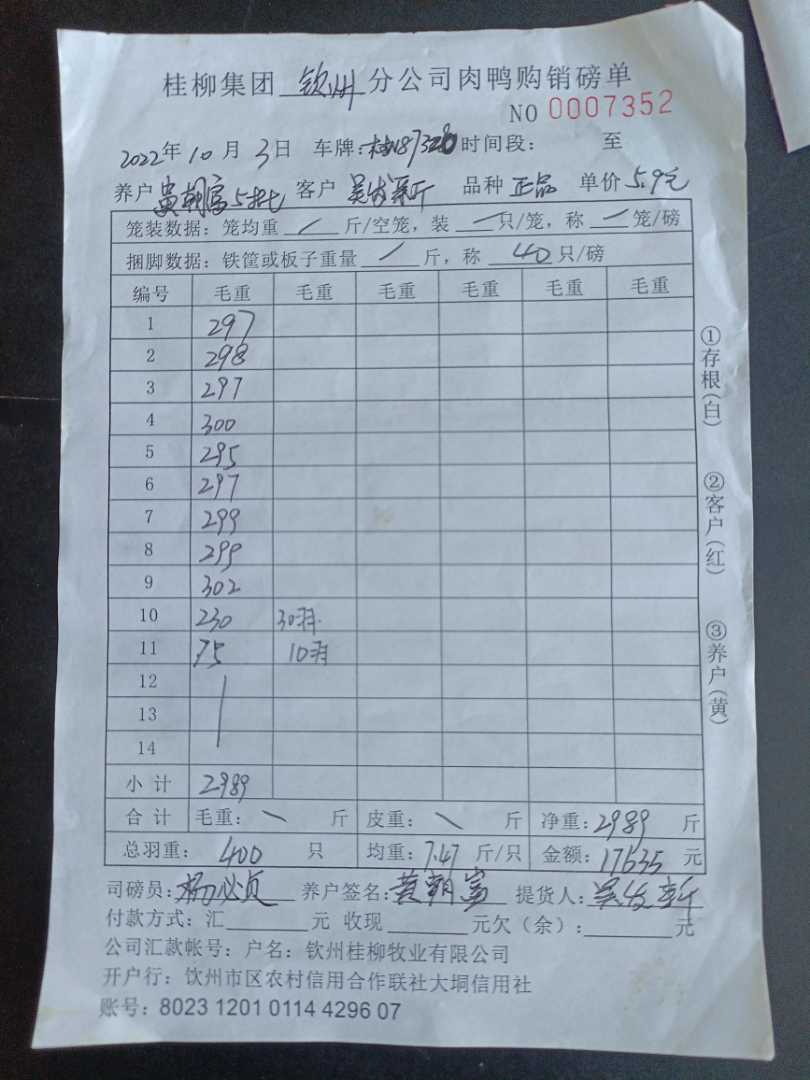 桂柳集团 钦州 分公司肉鸭购销磅单
NO 0007352
2022年 10 月 3日 车牌: 时间段: 至
养户 黄朝富5批 客户 品种 正品 单价 5.9元
笼装数据: 笼均重 / 斤/空笼, 装 一 只/笼, 称 一 笼/磅
捆脚数据: 铁筐或板子重量 / 斤, 称 40 只/磅
编号 毛重 毛重 毛重 毛重 毛重 毛重
1 297
2 298
3 297
4 300
5 295
6 297
7 299
8 299
9 302
10 230 30羽
11 75 10羽
12
13
14
小 计 2989
合 计 毛重: \ 斤 皮重: \ 斤 净重: 2989 斤
总羽重: 400 只 均重: 7.47 斤/只 金额: 17635 元
司磅员: 养户签名: 黄朝富 提货人:
付款方式: 汇 元 收现 元欠(余): 元
公司汇款帐号: 户名: 钦州桂柳牧业有限公司
开户行: 饮州市区农村信用合作联社大垌信用社
账号: 8023 1201 0114 4296 07
①存根(白) ②客户(红) ③养户(黄)